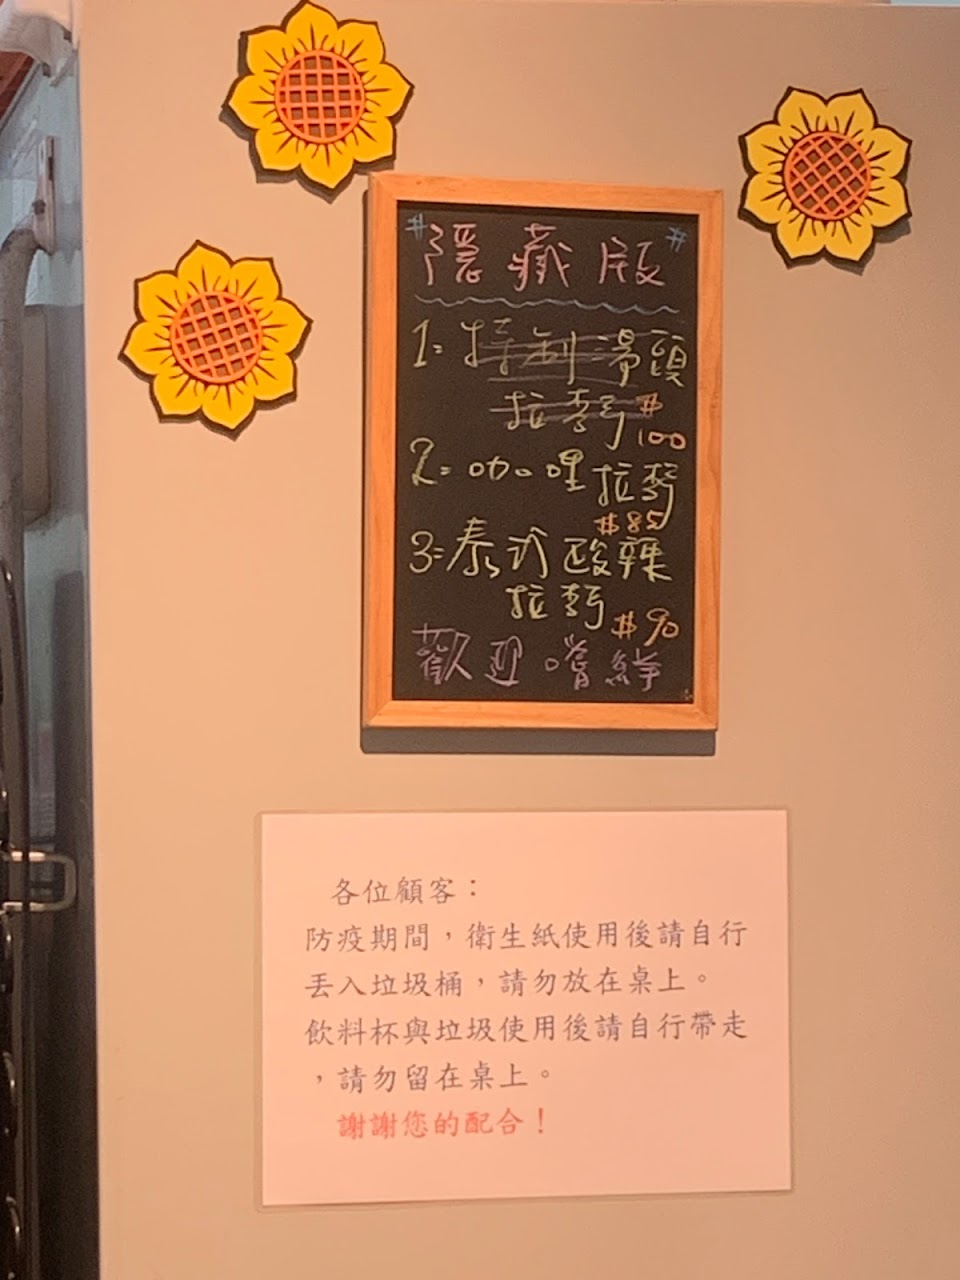 #隱藏版#
1=特制湯頭
拉麵$
100
2=咖哩拉麵
$85
3=泰式酸辣
拉麵$90
歡迎嚐鮮
各位顧客：
防疫期間，衛生紙使用後請自行
丟入垃圾桶，請勿放在桌上。
飲料杯與垃圾使用後請自行帶走
，請勿留在桌上。
謝謝您的配合！